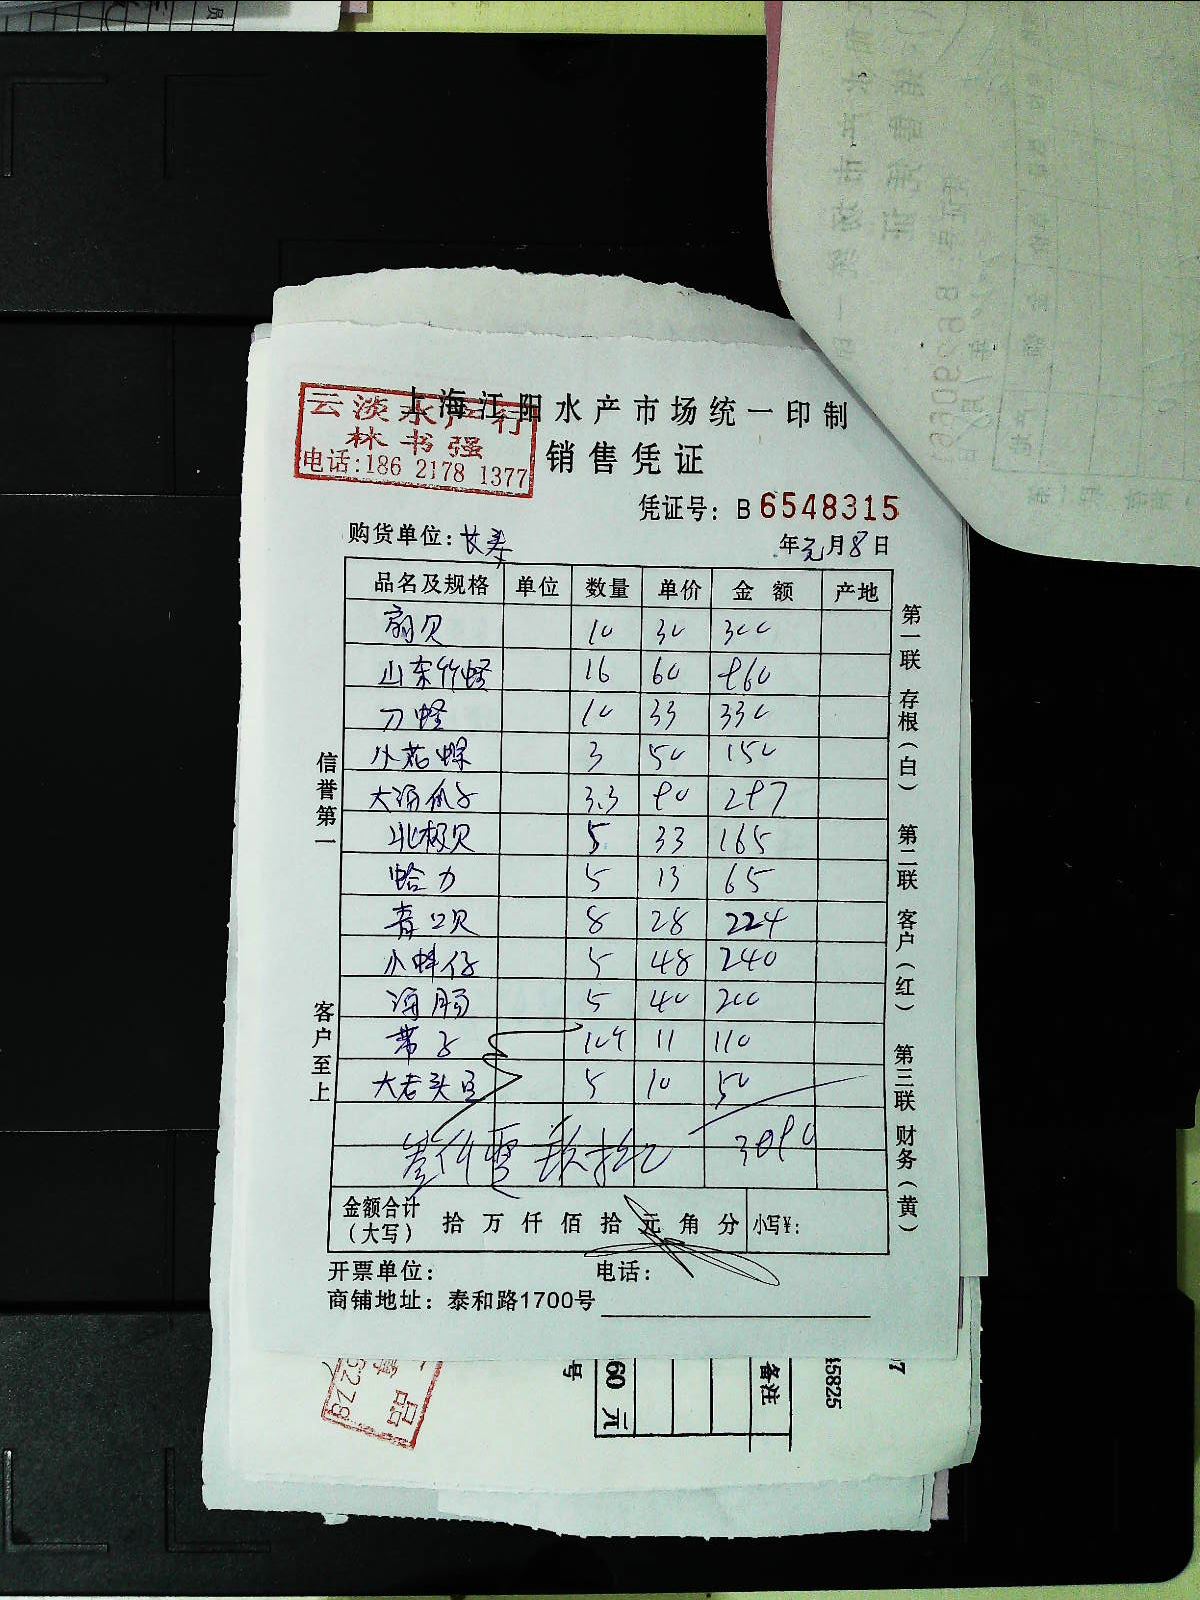 上海江阳水产市场统一印制
云淡水产行
林书强
电话:186 2178 1377
销售凭证
凭证号: B 6548315
购货单位: 长泰
年元月8日
品名及规格 单位 数量 单价 金 额 产地
扇贝 10 30 300
山东竹蛏 16 60 960
刀蛏 10 33 330
小花螺 3 50 150
大海瓜子 3.3 90 297
北极贝 5 33 165
蛤力 5 13 65
青口贝 8 28 224
小蚌仔 5 48 240
海肠 5 40 200
带子 10个 11 110
大老头豆 5 10 50
金额合计
(大写) 拾 万 仟 佰 拾 元 角 分 小写¥:
开票单位: 电话:
商铺地址: 泰和路1700号
信誉第一
客户至上
第一联 存根(白)
第二联 客户(红)
第三联 财务(黄)
号
60 元
备注